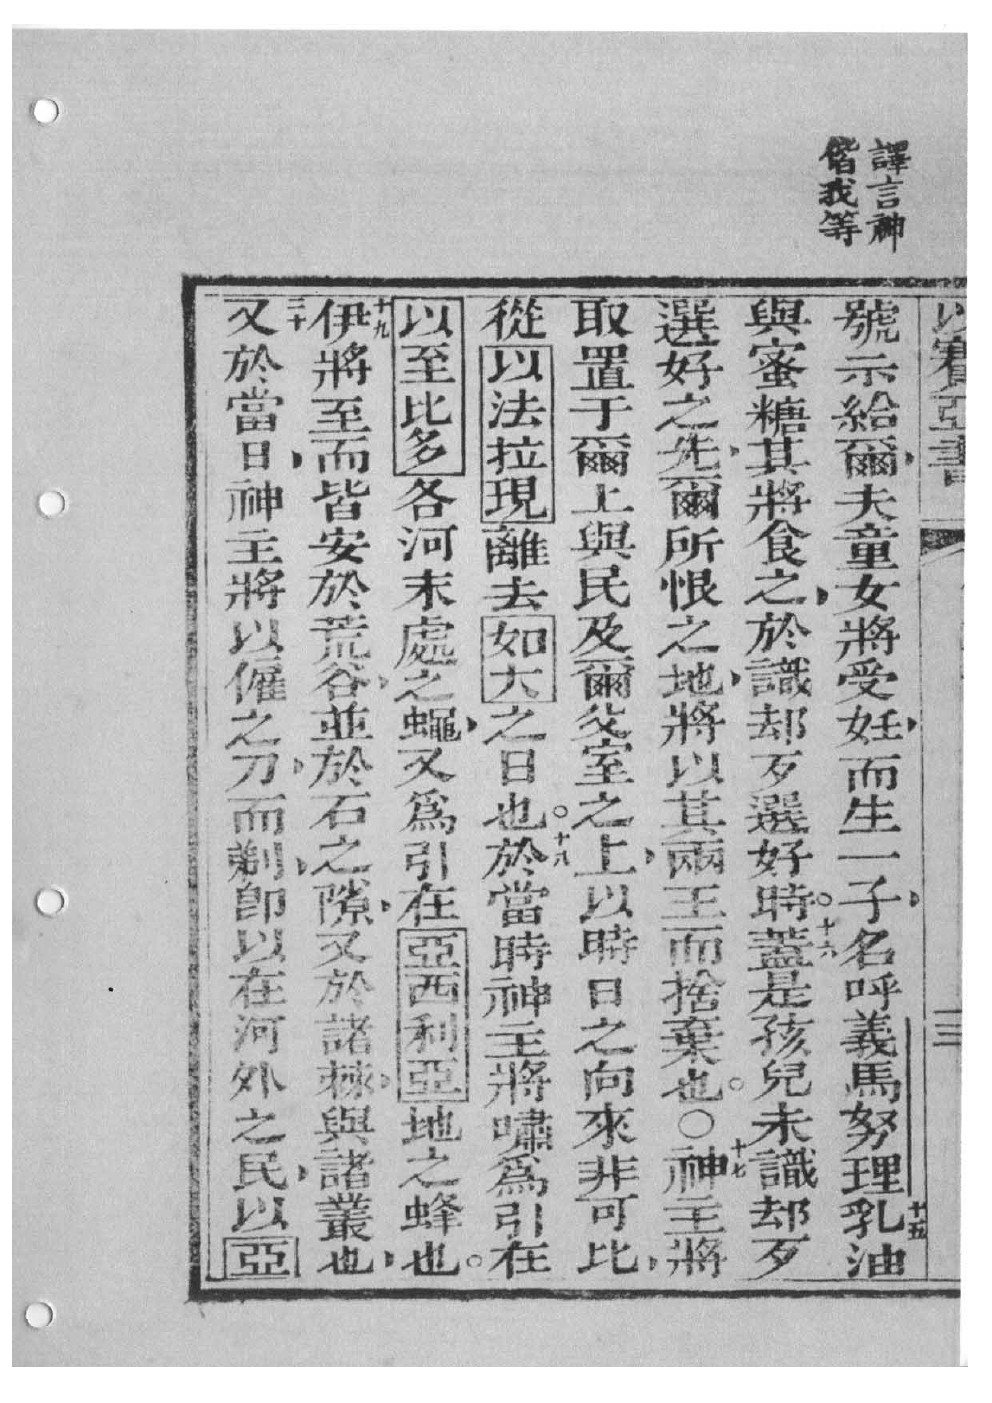 譯言神
偕我等
以賽亞書
三
號示給爾夫童女將受妊而生一子名呼義馬努理十五乳油
與蜜糖其將食之於識却歹選好時。十六蓋是孩兒未識却歹
選好之先爾所恨之地將以其兩王而捨棄也。〇十七神主將
取置于爾上與民及爾父室之上以時日之向來非可比
從以法拉現離去如大之日也。十八於當時神主將嘯爲引在
以至比多各河末處之蠅又爲引在亞西利亞地之蜂也。
十九伊將至而皆安於荒谷並於石之隙又於諸棘與諸叢也
二十又於當日神主將以僱之刀而剃卽以在河外之民以亞